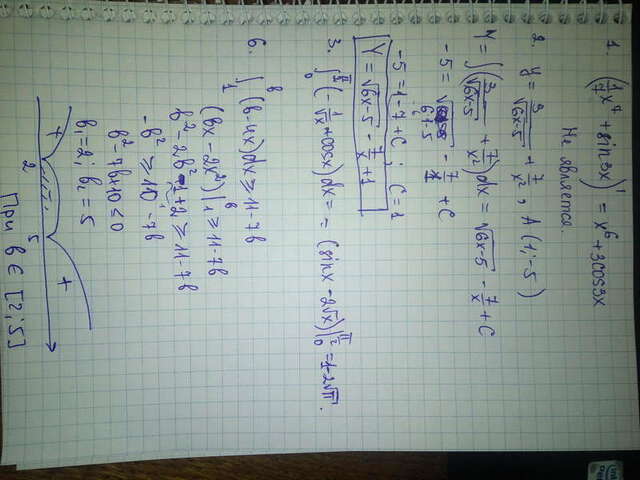 1. (1/7 x⁷ + sin3x)' = x⁶ + 3cos3x
Не является.
2. y = 3/√(6x-5) + 7/x², A(1;-5)
Y = ∫(3/√(6x-5) + 7/x²)dx = √(6x-5) - 7/x + C
-5 = √(6-5) - 7/1 + C
-5 = 1-7+C; C=1
Y = √(6x-5) - 7/x + 1
3. ∫(-1/√x + cosx)dx = (sinx - 2√x)| = 1-2√π.
6. ∫₁ᵇ (b-4x)dx ≥ 11-7b
(bx - 2x²)|₁ᵇ ≥ 11-7b
b² - 2b² - b + 2 ≥ 11-7b
-b² ≥ 10 - 7b
b² - 7b + 10 ≤ 0
b₁ = 2; b₂ = 5
+ 2 5 +
При b ∈ [2;5]